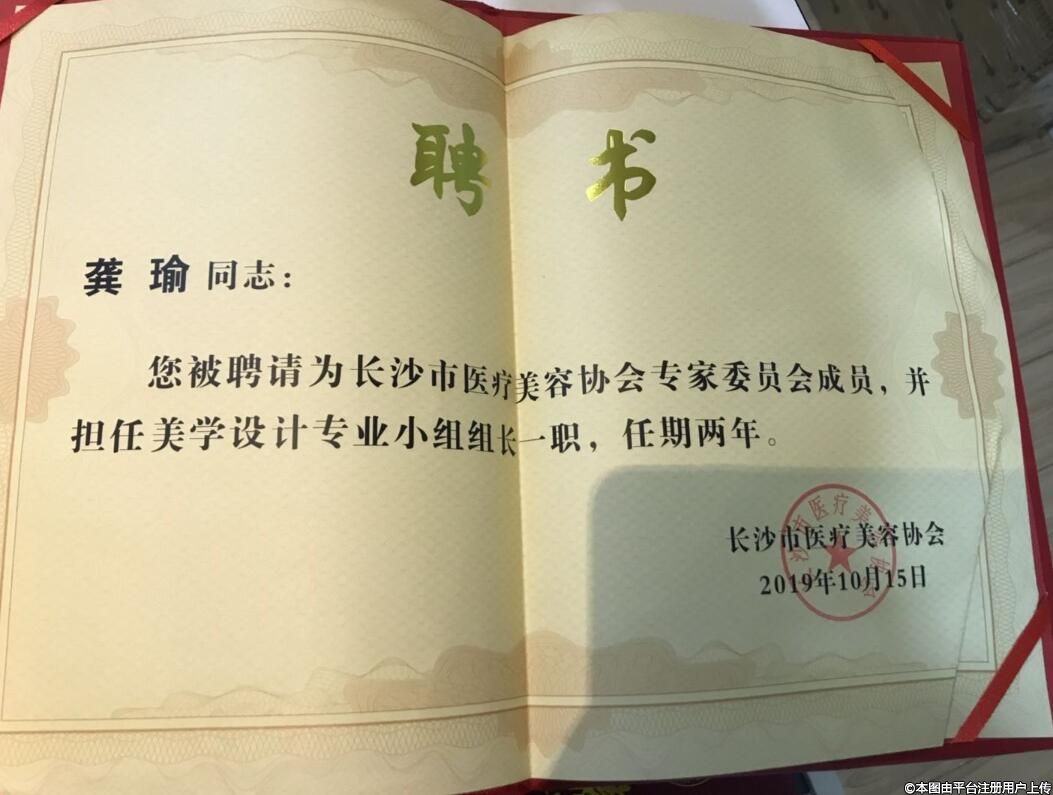 聘书
龚 瑜 同志：
您被聘请为长沙市医疗美容协会专家委员会成员，并
担任美学设计专业小组组长一职，任期两年。
长沙市医疗美容协会
2019年10月15日
长沙市医疗美容协会
©本图由平台注册用户上传